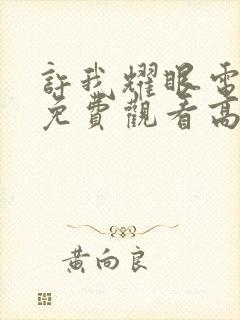 許我耀眼電
免費觀看高
黃向良